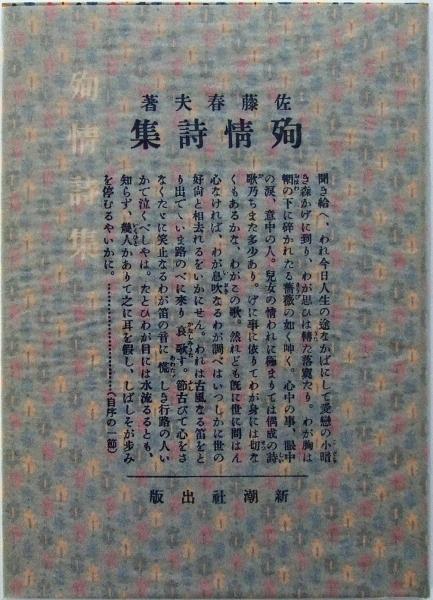 佐藤春夫著
殉情詩集
殉情詩集
聞き給へ、われ今日人生の途なかばにして愛戀の小暗
き森かげに到り、わが思ひは轉た落寞たり。わが胸は
輞の下に碎かれたる薔薇の如く呻く。心中の事、眼中
の涙、意中の人。兒女の情われに極まりては偶成の詩
歌乃ちまた多少あり。げに事に依りてわが身には切な
くもあるかな、わがこの歌。然れども既に世に問はん
心なければ、わが息吹なるわが調べはいつしかに世の
好尚と相去れるをいかにせん。われは古風なる笛をと
り出でていま路のべに來り哀歌す。節古びて心をさ
なくたゞに笑止なるわが笛の音に慌しき行路の人い
かで泣くべしやは。たとひわが目には水流るるとも、
知らず、幾人かありて之に耳を假し、しばしその步み
を停むるやいかに。…………………(自序の一節)
新潮社出版